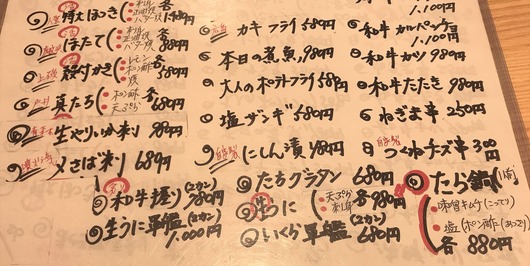 特大ほっき 刺身 バター焼 各1480円
ほたて 刺身 各880円
殻付かき レモン ポン酢 焼 各580円
真たち ポン酢 天ぷら 各680円
生やりいか刺 980円
〆さば刺 680円
和牛握り(2カン) 780円
生うに軍艦(2カン) 1.000円
カキフライ 580円
本日の煮魚 980円
大人のポテトフライ 580円
塩ザンギ 580円
自家製 にしん漬 480円
たちグラタン 680円
生うに 天ぷら 刺身 各980円
いくら軍艦(2カン) 680円
和牛カルパッチョ 1.100円
和牛カツ 980円
和牛たたき 980円
ねぎま串 250円
自家製 つくねチーズ串 300円
たら鍋(1人前)
味噌キムチ(こってり)
塩(ポン酢)(あっさり)
各880円